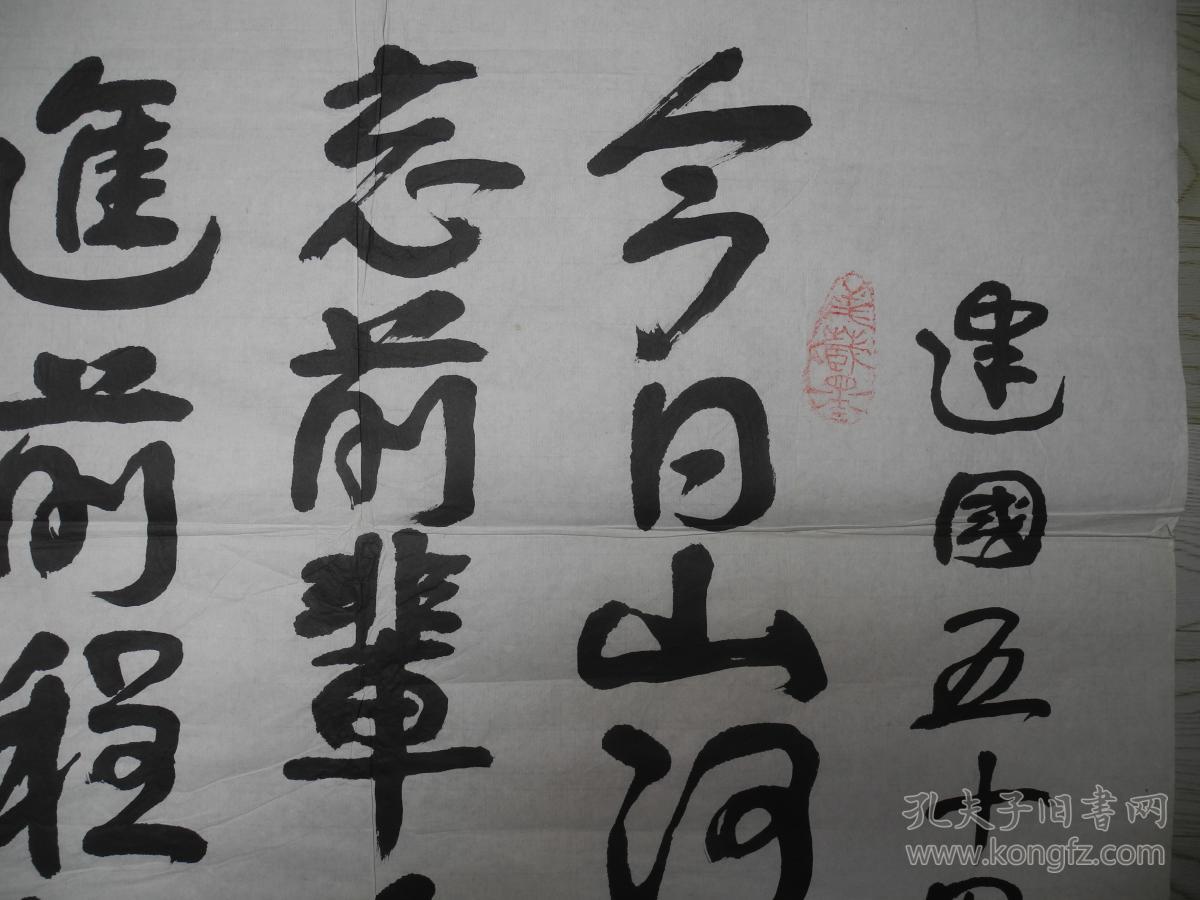 建國五十周
今日山河
志前輩
進前程
孔夫子旧书网
www.kongfz.com